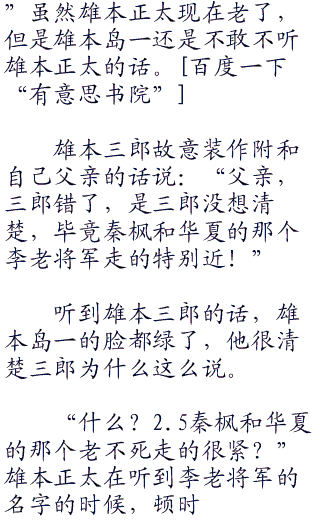 ”虽然雄本正太现在老了，
但是雄本岛一还是不敢不听
雄本正太的话。[百度一下
“有意思书院”]
雄本三郎故意装作附和
自己父亲的话说：“父亲，
三郎错了，是三郎没想清
楚，毕竟秦枫和华夏的那个
李老将军走的特别近！”
听到雄本三郎的话，雄
本岛一的脸都绿了，他很清
楚三郎为什么这么说。
“什么？2.5秦枫和华夏
的那个老不死走的很紧？”
雄本正太在听到李老将军的
名字的时候，顿时